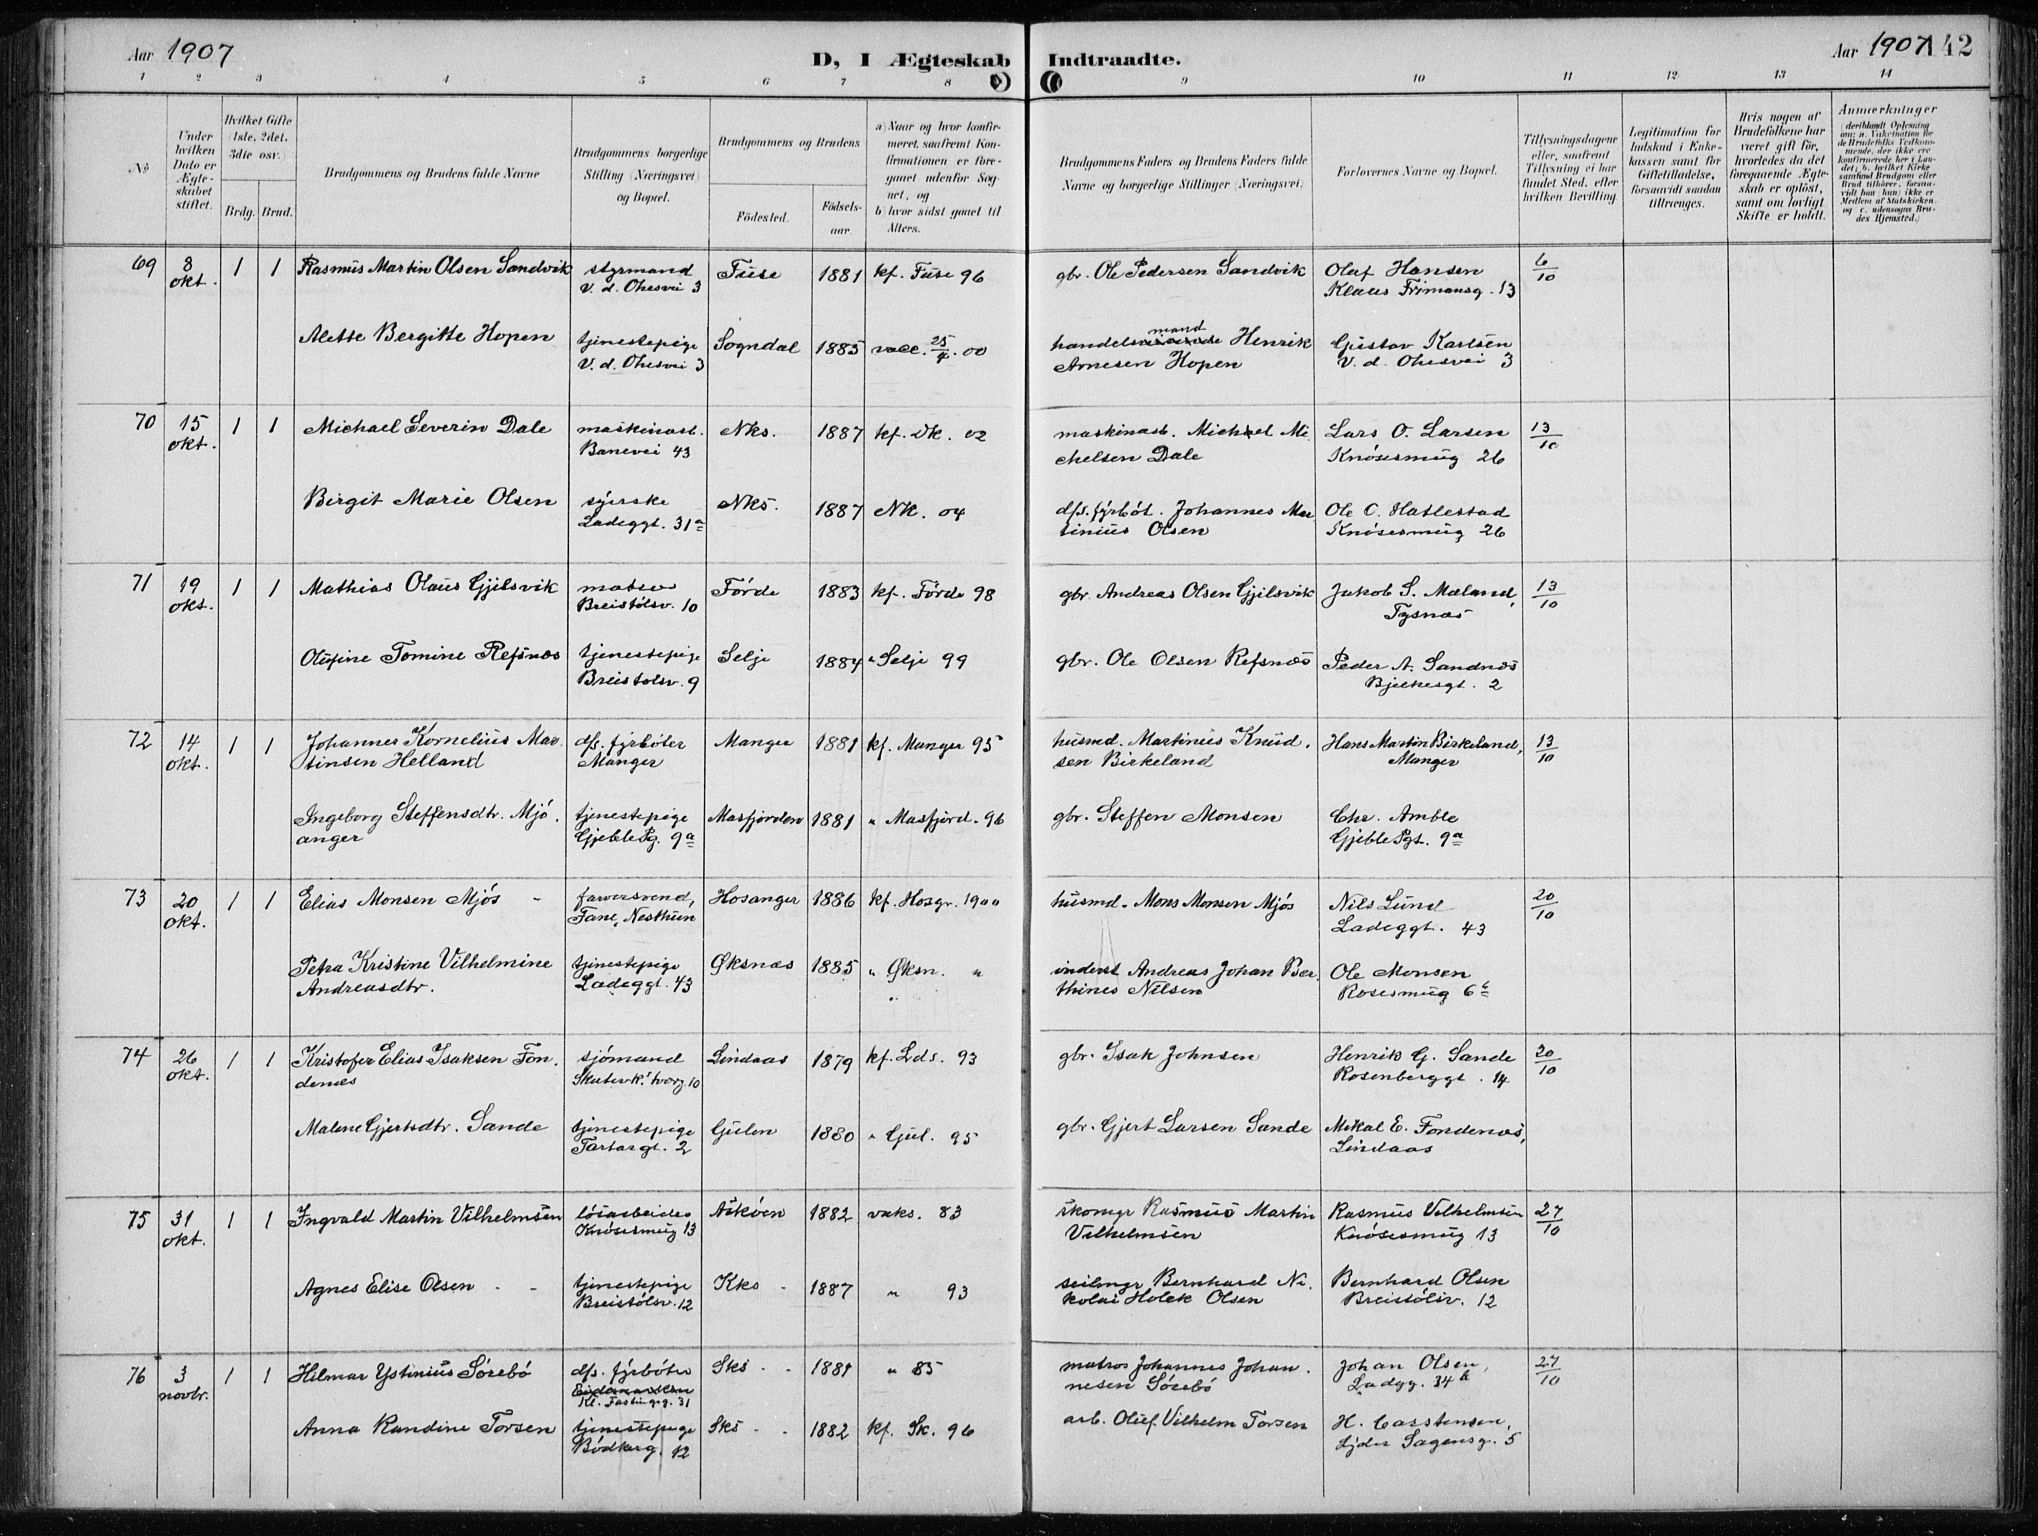 Aar 1907
D, I Ægteskab Indtraadte.
Aar 1907 142
1 2 3 4 5 6 7 8 9 10 11 12 13 14
No
Under hvilken Dato er Ægteskabet stiftet.
Hvilket Gifte (1ste, 2det, 3die osv.)
Brdg. Brud.
Brudgommens og Brudens fulde Navne
Brudgommens borgerlige Stilling (Næringsvei) og Bopæl.
Brudgommens og Brudens
Födested. Födsels-aar.
a) Naar og hvor konfirmeret, saafremt Konfirmationen er foregaaet udenfor Sognet, og
b) hvor sidst gaaet til Alters.
Brudgommens Faders og Brudens Faders fulde Navne og borgerlige Stillinger (Næringsvei)
Forlovernes Navne og Bopæl.
Tillysningsdagene eller, saafremt Tillysning ei har fundet Sted, efter hvilken Bevilling
Legitimation for Indskud i Enkekassen samt for Giftetilladelse, forsaavidt saadan tiltrænges.
Hvis nogen af Brudefolkene har været gift för, hvorledes da det foregaaende Ægteskab er oplöst, samt om lovligt Skifte er holdt.
Anmærkninger
69 8 okt. 1 1 Rasmus Martin Olsen Sandvik styrmand V. d. Ohesvei 3 Fuse 1881 kf. Fuse 96 gbr. Ole Pedersen Sandvik Olaf Hansen Klaus Frimansg. 13 6/10
Alette Bergitte Hopen tjenestepige V. d. Ohesvei 3 Sogndal 1885 vacc. 25/4. 00 handelsmand Henrik Arnesen Hopen Gustav Karlsen V. d. Ohesvei 3
70 15 okt. 1 1 Michael Severin Dale maskinast. Banevei 43 Nks. 1887 kf. Dk. 02 maskinast. Michael Michelsen Dale Lars O. Larsen Knösesmug 26 13/10
Birgit Marie Olsen syerske Ladeggt. 31a Nks. 1887 NK. 04 dfs. fyrböt. Johannes Martinius Olsen Ole C. Hatlestad Knösesmug 26
71 19 okt. 1 1 Mathias Olaus Gjilsvik matros Breistölsv. 10 Förde 1883 kf. Förde 98 gbr. Andreas Olsen Gjilsvik Jakob S. Mæland, Tysnæs 13/10
Olufine Tomine Refsnæs tjenestepige Breistölsv. 9 Selje 1884 " Selje 99 gbr. Ole Olsen Refsnæs Peder A. Sandnæs Bjelkesgt. 2
72 14 okt. 1 1 Johannes Kornelius Martinsen Helland dfs. fyrböter Manger Manger 1881 kf. Manger 95 husmd. Martinus Knudsen Birkeland Hans Martin Birkeland, Manger 13/10
Ingeborg Steffensdtr. Mjöanger tjenestepige Gjeblepg. 9a Masfjorden 1881 " Masfjord. 96 gbr. Steffen Monsen Chr. Amble Gjeble Pgt. 9a
73 20 okt. 1 1 Elias Monsen Mjös - farversvend, Fane, Nesttun Hosanger 1886 kf. Hosgr. 1900 husmd. Mons Monsen Mjös Nils Lund Ladeggt. 43 20/10
Petra Kristine Vilhelmine Andreasdtr. tjenestepige Ladeggt. 43 Øksnæs 1885 " Øksn. " inderst Andreas Johan Berthines Nilsen Ole Monsen Rosesmug 6c
74 26 okt. 1 1 Kristofer Elias Isaksen Fondenæs sjömand Skutevk. tverg. 10 Lindaas 1879 kf. Lds. 93 gbr. Isak Johnsen Henrik G. Sande Rosenberggt. 14 20/10
Malene Gjertsdtr. Sande tjenestepige Tartargt. 2 Gulen 1880 " Gul. 95 gbr. Gjert Larsen Sande Mikal E. Fondenæs, Lindaas
75 31 okt. 1 1 Ingvald Martin Vilhelmsen lösarbeider Knösesmug 13 Askøen 1882 vaks. 83 skomgr Rasmus Martin Vilhelmsen Rasmus Vilhelmsen Knösesmug 13 27/10
Agnes Elise Olsen - - tjenestepige Breistölsv. 12 Kks - 1887 " 93 seilmgr Bernhard Nikolai Holck Olsen Bernhard Olsen Breistölsv. 12
76 3 novbr. 1 1 Hilmar Ystinius Sörebö dfs. fyrböter Kl. Fastingsg. 31 Sks - - 1881 " 85 matros Johannes Johannesen Sörebö Johan Olsen, Ladgg. 34b 27/10
Anna Randine Torsen tjenestepige Bödkerg. 12 Sks - - 1882 kf. Sk. 96 arb. Oluf Vilhelm Torsen H. Carstensen, Lyder Sagensg. 5